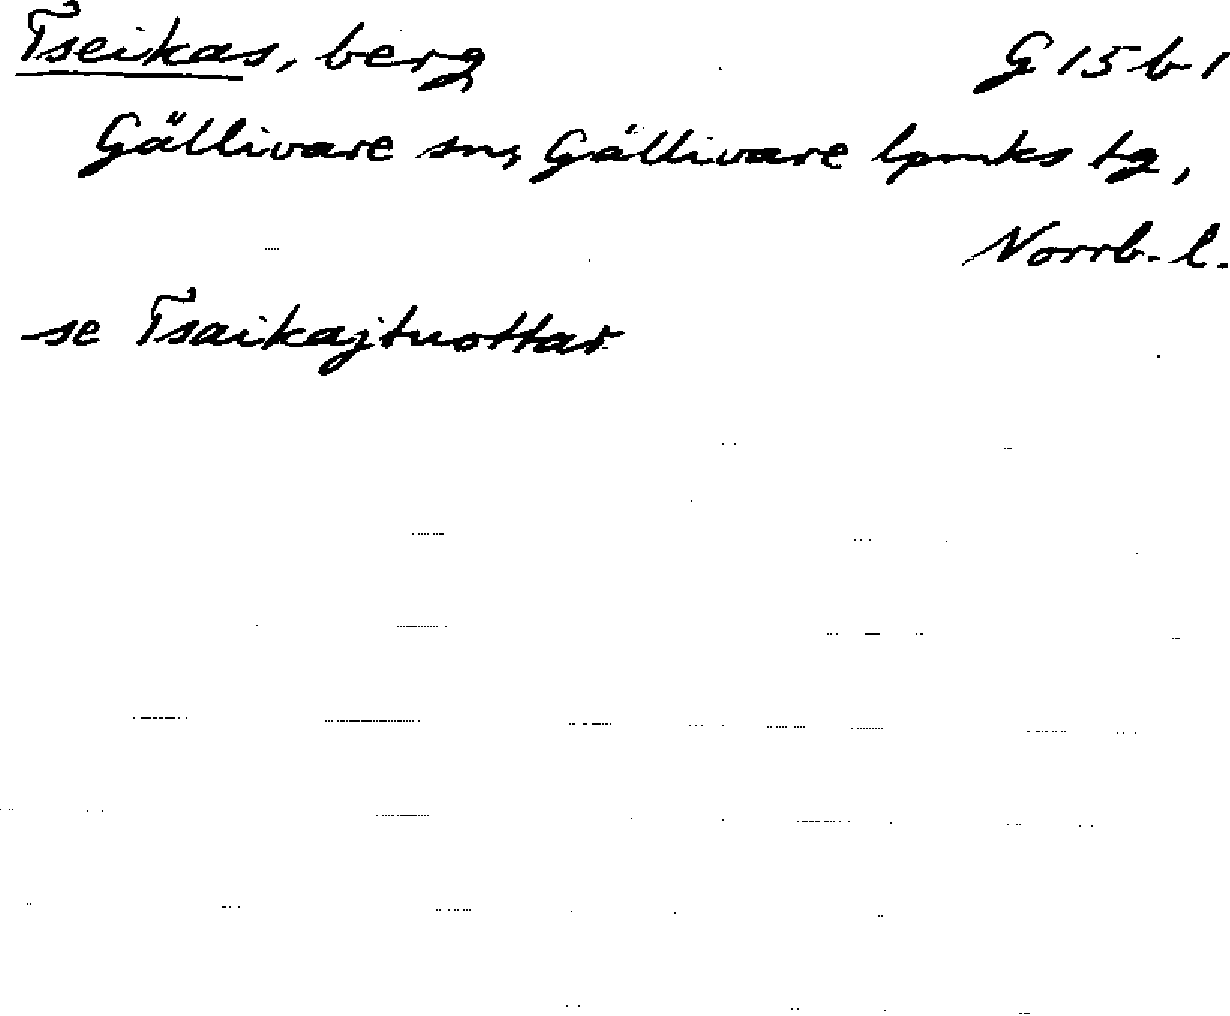 Tseikas, berg G 15 b 1
Gällivare sn, Gällivare lpmks tg,
Norrb. l.
se Tsaikajtuottar